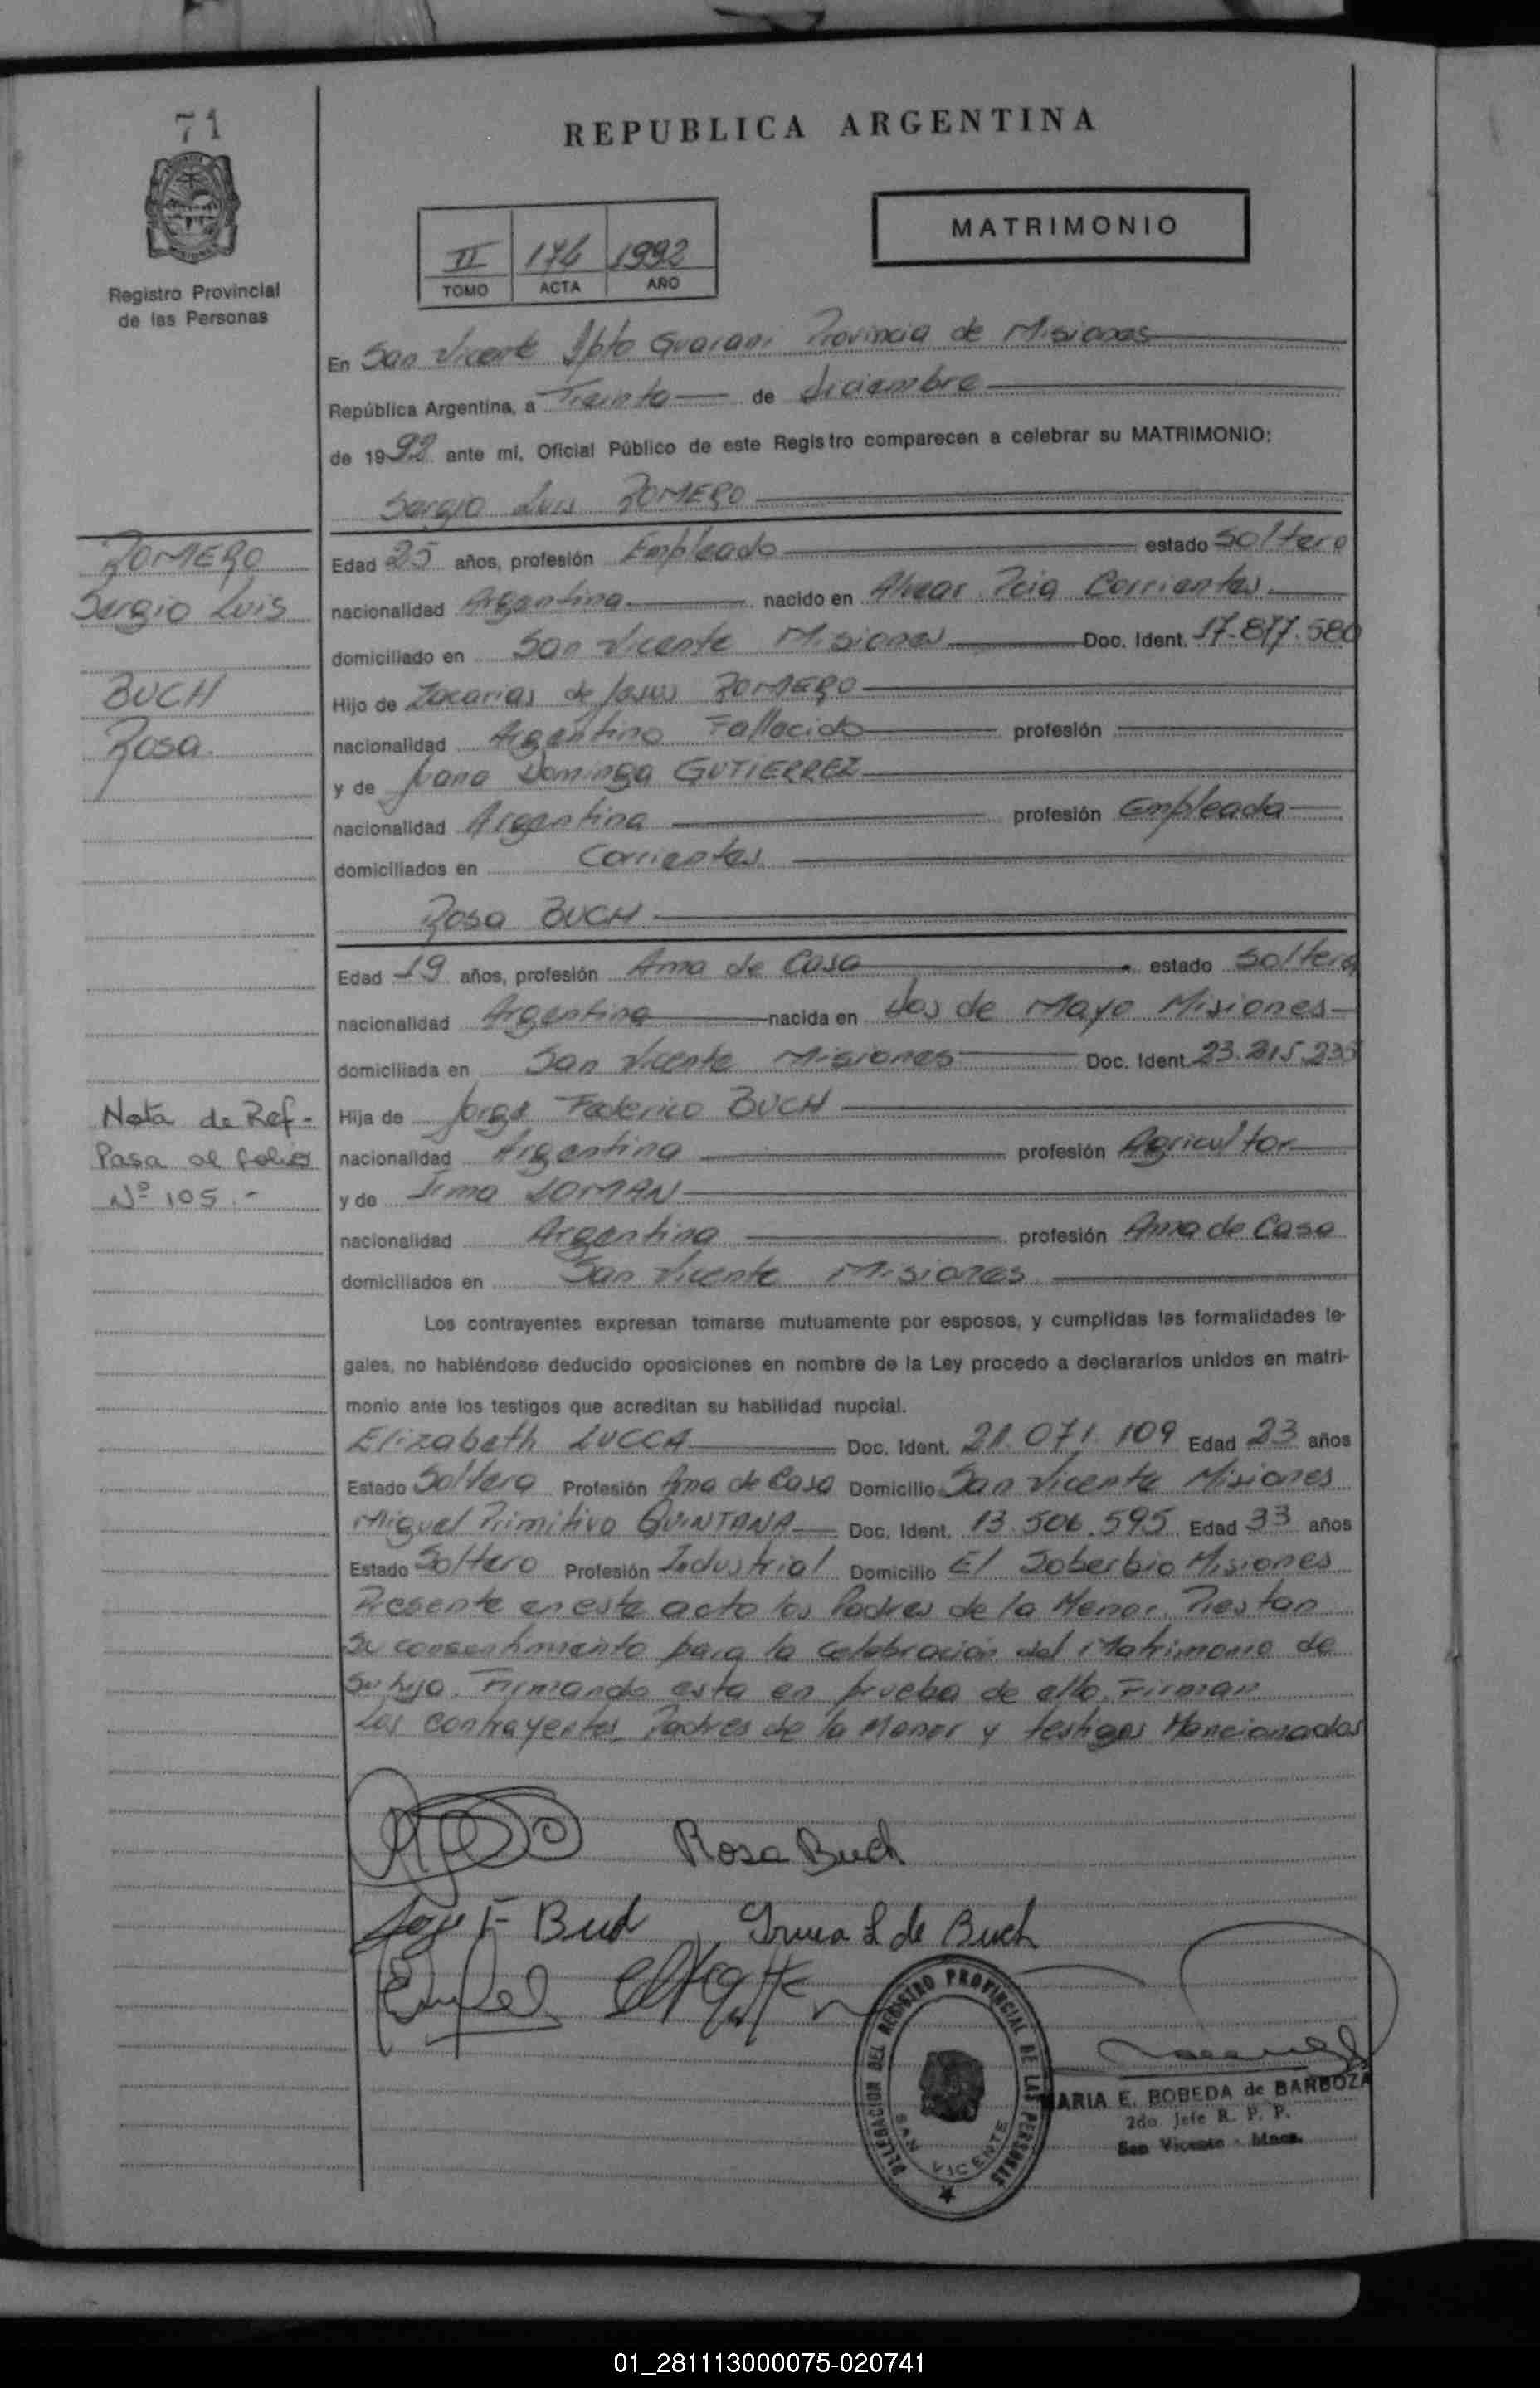 71
REPUBLICA ARGENTINA
MATRIMONIO
II 174 1992
TOMO ACTA AÑO
Registro Provincial
de las Personas
En San Vicente Dpto Guarani Provincia de Misiones
República Argentina, a Treinta de diciembre
de 1992 ante mí, Oficial Público de este Registro comparecen a celebrar su MATRIMONIO:
Sergio Luis ROMERO
ROMERO
Sergio Luis
BUCH
Rosa.
Edad 25 años, profesión Empleado estado Soltero
nacionalidad Argentina nacido en Alvear Pcia Corrientes
domiciliado en San Vicente Misiones Doc. Ident. 17.877.580
Hijo de Zacarias de Jesus ROMERO
nacionalidad Argentino Fallecido profesión
y de Juana Dominga GUTIERREZ
nacionalidad Argentina profesión Empleada
domiciliados en Corrientes
Rosa BUCH
Edad 19 años, profesión Ama de Casa estado Soltera
nacionalidad Argentina nacida en Dos de Mayo Misiones
domiciliada en San Vicente Misiones Doc. Ident. 23.215.235
Nota de Ref-
Pasa al folio
Nº 105.-
Hija de Jorge Federico BUCH
nacionalidad Argentina profesión Agricultor
y de Irma LOMAN
nacionalidad Argentina profesión Ama de Casa
domiciliados en San Vicente Misiones
Los contrayentes expresan tomarse mutuamente por esposos, y cumplidas las formalidades le-
gales, no habiéndose deducido oposiciones en nombre de la Ley procedo a declararlos unidos en matri-
monio ante los testigos que acreditan su habilidad nupcial.
Elizabeth LUCCA Doc. Ident. 21.071.109 Edad 23 años
Estado Soltera Profesión Ama de Casa Domicilio San Vicente Misiones
Miguel Primitivo QUINTANA Doc. Ident. 13.506.595 Edad 33 años
Estado Soltero Profesión Industrial Domicilio El Soberbio Misiones
Presente en este acto los Padres de la Menor, Prestan
Su consentimiento para la celebración del Matrimonio de
Su hija. Firmando esta en prueba de ello. Firman
Los contrayentes, Padres de la Menor y testigos Mencionados
Rosa Buch
Jorge F Buch Irma L de Buch
DELEGACION DEL REGISTRO PROVINCIAL DE LAS PERSONAS
SAN VICENTE
MARIA E. BOBEDA de BARBOZA
2do. Jefe R. P. P.
San Vicente - Mnes.
01_281113000075-020741